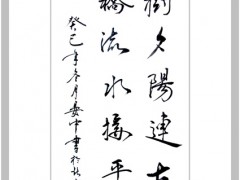 樹夕陽連古
橋流水接平
癸巳年冬月安中書於